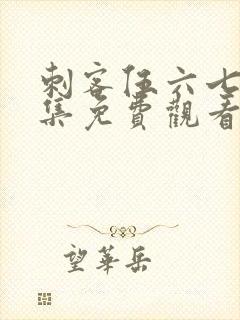 刺客伍六七
集免費觀看
望華岳